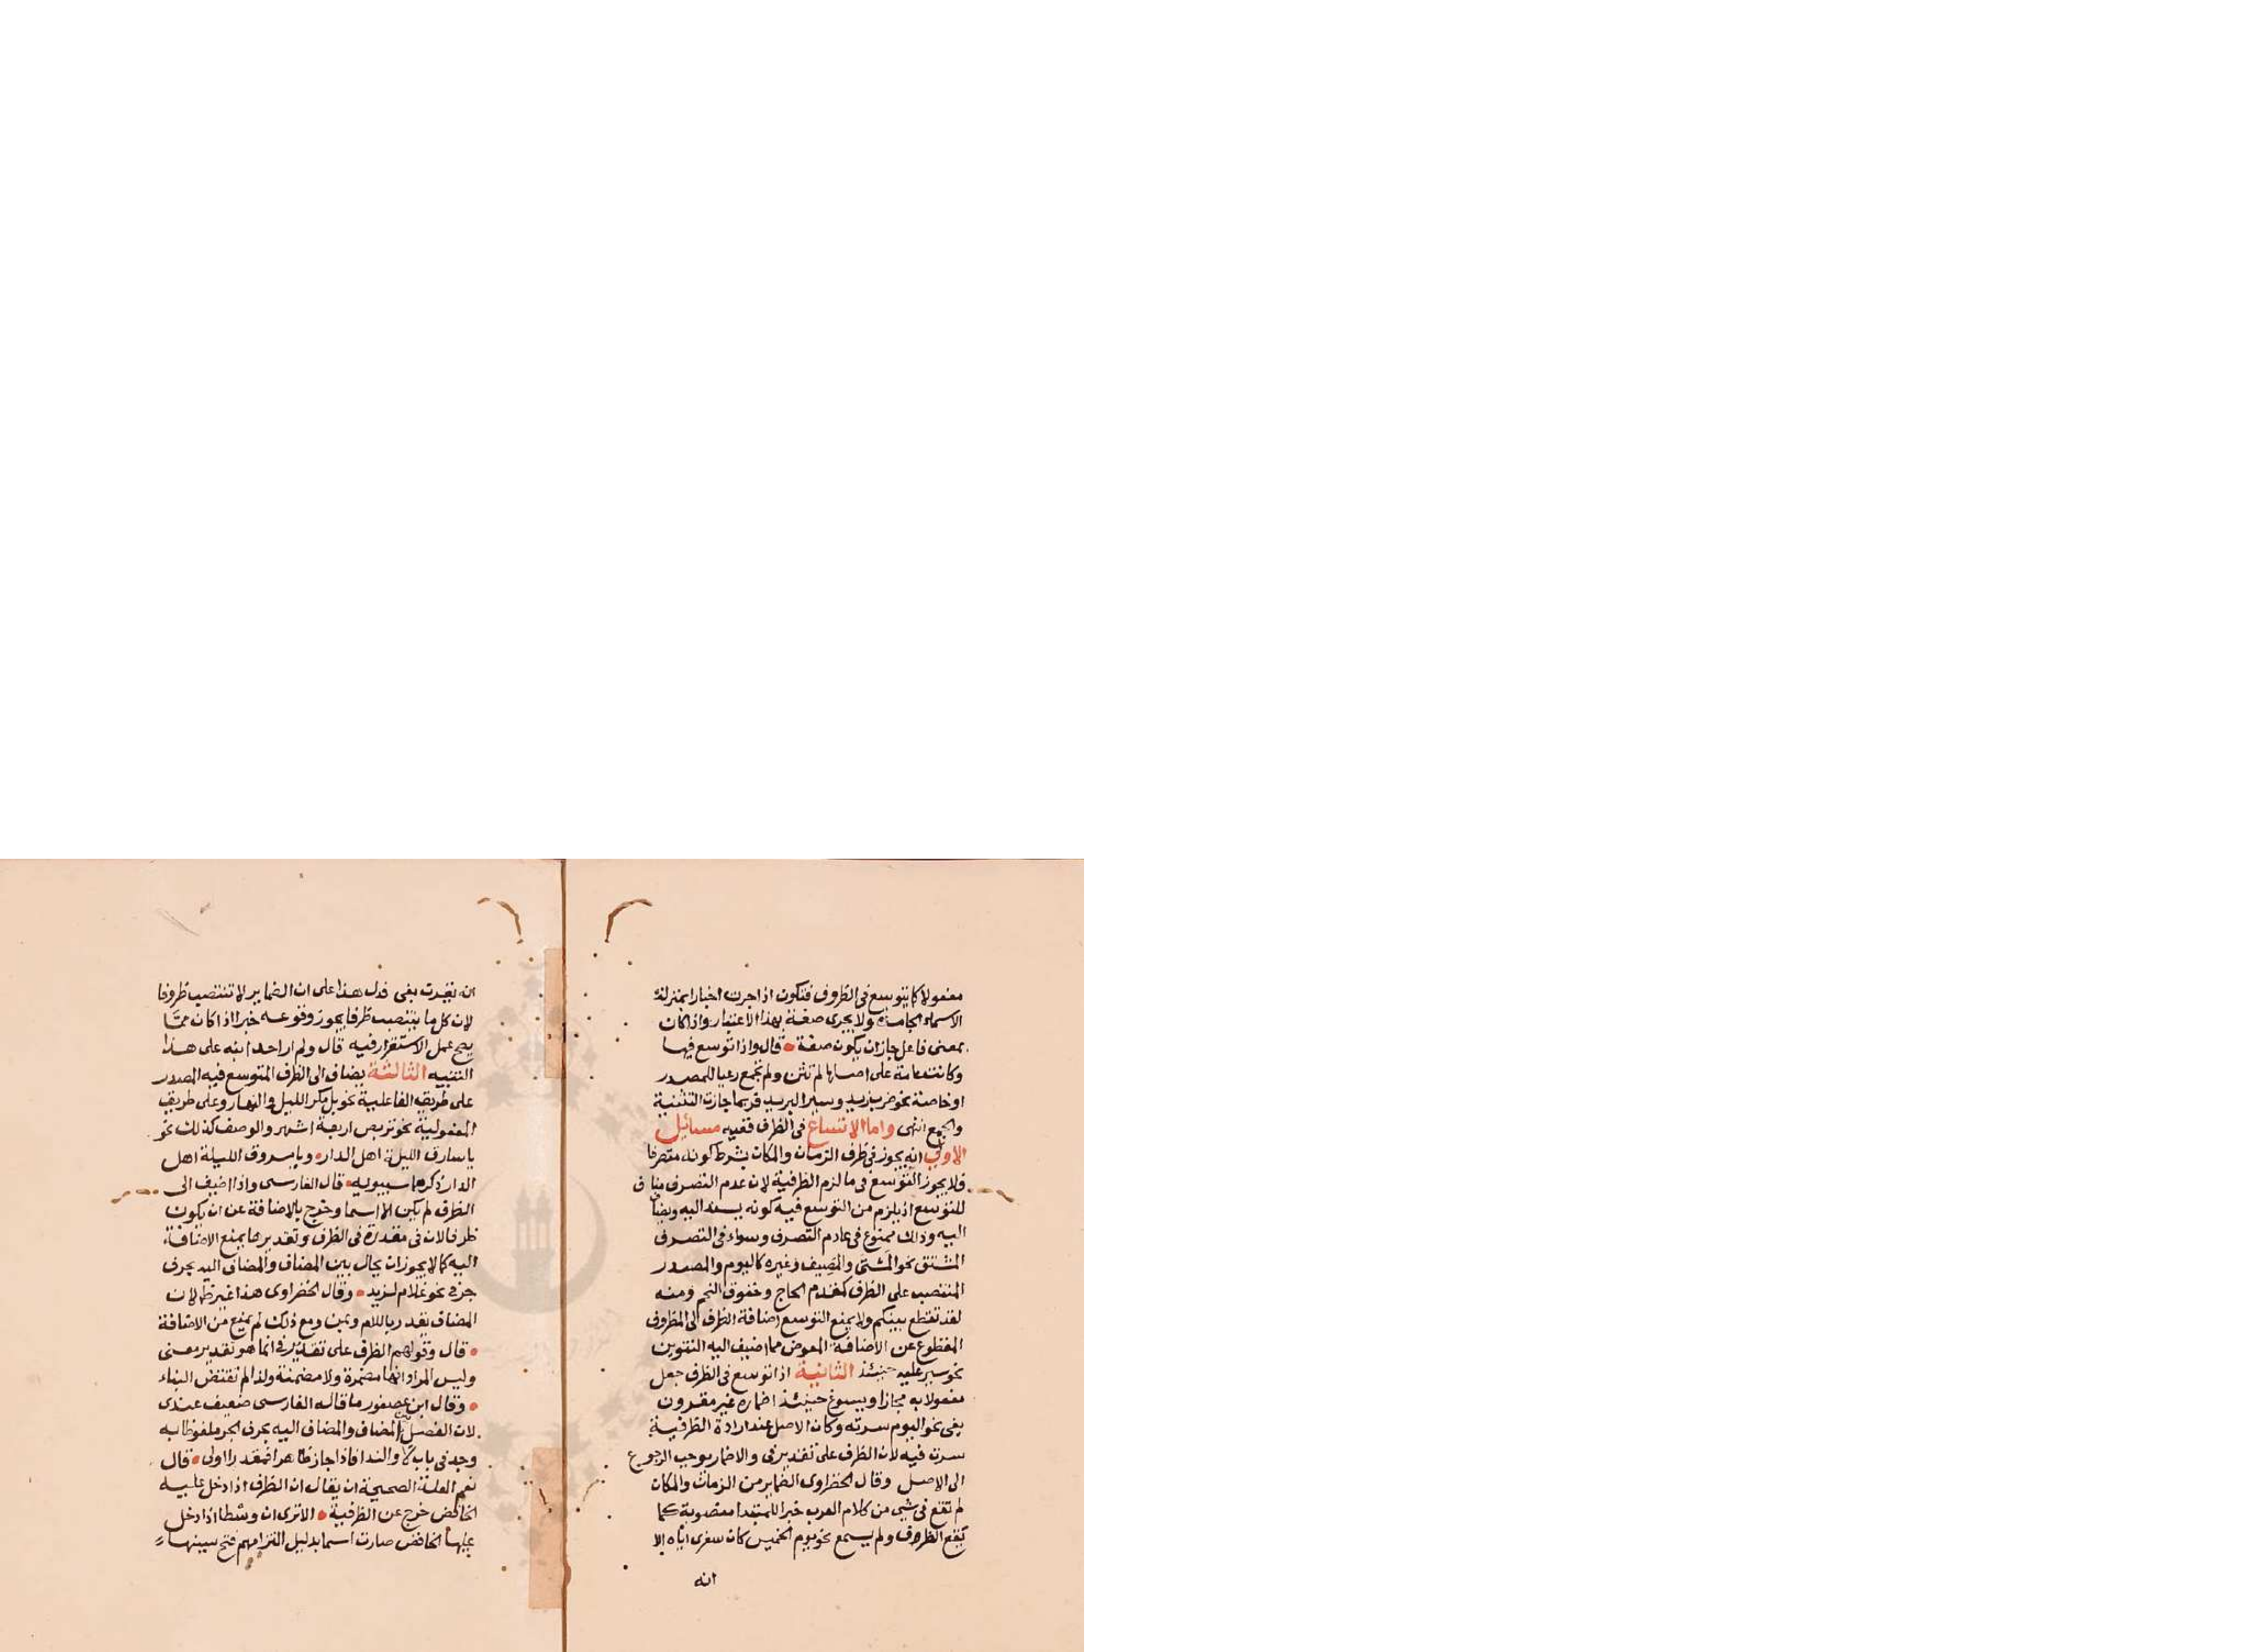 مفعولا كما يتوسع فى الظروف فتكون اذا جرت اخبارا بمنزلة
الاسماء الجامدة ولا يجرى صفة بهذا الاعتبار واذا كان
بمعنى فاعل جاز ان يكون صفة • قال واذا توسع فيها
وكانت عامة على اصلها لم تثن ولم تجمع رعيا للمصدر
او خاصة نحو ضرب زيد وسير البريد فربما جازت التثنية
والجمع انتهى واما الاتساع فى الظرف ففيه مسائيل
الاولى انه يجوز فى ظرف الزمان والمكان بشرط كونه متصرفا
فلا يجوز التوسع فى ما لزم الظرفية لان عدم التصرف مناف
للتوسع اذ يلزم من التوسع فيه كونه يسند اليه ويضاف
اليه وذلك ممنوع فى عادم التصرف وسواء فى التصرف
المشتق نحو المشتى والمصيف وغيره كاليوم والمصدر
المنتصب على الظرف كمقدم الحاج وخفوق النجم ومنه
لقد تقطع بينكم ولا يمنع التوسع اضافة الظرف الى المظروف
المقطوع عن الاضافة المعوض مما اضيف اليه التنوين
نحو سير عليه حينئذ الثانية اذا توسع فى الظرف جعل
مفعولا به مجازا ويسوغ حينئذ اضماره غير مقرون
بفى نحو اليوم سرته وكان الاصل عند ارادة الظرفية
سرت فيه لان الظرف على تقدير فى والاضمار يوجب الرجوع
الى الاصل وقال الخضراوى الضماير من الزمان والمكان
لم تقع فى شيى من كلام العرب خبرا للمبتدا منصوبة كما
يقع الظروف ولم يسمع نحو يوم الخميس كان سفرى اياه الا
انه
انه بقيدت بفى فدل هذا على ان الضماير لا تنتصب ظروفا
لان كل ما ينتصب ظرفا يجوز وقوعه خبرا اذا كان ممّا
يصح عمل الاستقرار فيه قال ولم ار احدا نبه على هذا
التنبيه الثالثة يضاف الى الظرف المتوسع فيه المصدر
على طريق الفاعلية نحو بل مكر الليل والنهار وعلى طريق
المفعولية نحو تربص اربعة اشهر والوصف كذلك نحو
يا سارق الليلة اهل الدار • ويا مسروق الليلة اهل
الدار ذكرهما سيبويه • قال الفارسى واذا اضيف الى
الظرف لم يكن الا اسما وخرج بالاضافة عن ان يكون
ظرفا لان فى مقدرة فى الظرف وتقديرها يمنع الاضافة
اليه كما لا يجوز ان يحال بين المضاف والمضاف اليه بحرف
جر فى نحو غلام لزيد • وقال الخضراوى هذا غير ظ لان
المضاف يقدر باللام وبمن ومع ذلك لم يمنع من الاضافة
• قال وقولهم الظرف على تقدير فى انما هو تقدير معنى
وليس المراد انها مضمرة ولا مضمنة ولذا لم تقتض البناء
• وقال ابن عصفور ما قاله الفارسى ضعيف عندى
لان الفصل بين المضاف والمضاف اليه بحرف الجر ملفوظا به
وجد فى باب لا والندا فاذا جاز ظاهرا فمقدرا اولى • قال
نعم العلة الصحيحة ان يقال ان الظرف اذا دخل عليه
الخافض خرج عن الظرفية • الا ترى ان وسْطا اذا دخل
عليها الخافض صارت اسما بدليل التزامهم فتح سينها